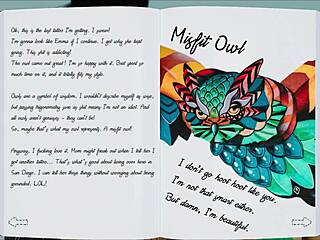 Oh, this is the last tattoo I'm getting, I swear!
I'm gonna look like Emma if I continue. I get why she kept
going. This shit is addicting!
The owl came out great! I'm so happy with it. Best spent so
much time on it, and it totally fits my style.
Owls are a symbol of wisdom. I wouldn't describe myself as wise,
but passing trigonometry was no shit means I'm not an idiot. And
all owls aren't geniuses - they can't be!
So, maybe that's what my owl represents. A misfit owl!
Anyway, I fucking love it. Mom might freak out when I tell her I
got another tattoo... That's what's good about living over here in
San Diego. I can tell her these things without worrying about being
grounded. LOL!
Misfit Owl
I don't go hoot hoot like you.
I'm not that smart either.
But damn, I'm beautiful.